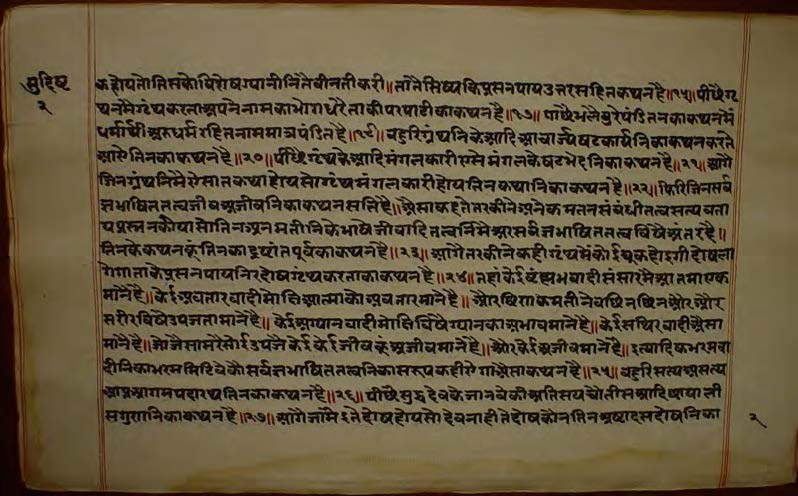 सुदिष्ट
२
कहोयतोतिसकोविशेषग्यानीनितैवीनतीकरी॥तातैसिष्यकिप्रसनपायउत्तरसहितकथनहै॥१५॥पीछैगृ
थनमेगृंथकरताअपनेनामकाभोगधरेताकीपरपाटीकाकथनहै॥१७॥पाछैभलेबुरेपंडितनकाकथनमें
धर्मार्थीअरुधर्मरहितनाममात्रपंडितहै॥१९॥बहुरिगृंथनिकेआदिआचार्यषटकार्यनिकाकथनकरते
आएतिनकाकथनहै॥२०॥पीछैगृंथकेआदिमंगलकारीएसेमंगलकेषटभेदनिकाकथनहै॥२१॥आगे
जिनगृंथनिमैऐसातकथाहोयसोगृंथमंगलकारीहोयतिनकथानिकाकथनहै॥२२॥फिरिजिनसर्व
ज्ञभाषिततत्वजीवअजीवनिकाकथनसतिहै॥औसाकहंतेतरकीनेअनेकमतनसंबंधीतत्वसत्यवता
यप्रस्नकीयासोतिनअनमतीनिकेभाषेजीवादितत्वनिमेअरसर्वज्ञभाषिततत्वविषेअंतरहै॥
तिनकेकथनकूंतिनकाद्रष्टांतपूर्वकाकथनहै॥२३॥आगैतरकीनेकहीगृंथमेंकोईचूकहोइगीदोषला
गेगाताकेप्रसनपायनिरदोषगृंथकरताकाकथनहै॥२४॥तहांकेईब्रंह्मभवादीसंसारमैआतमाएक
मानेहै॥केईअवतारवादीमोक्षिआत्माकोअवतारमानेहै॥औरक्षिणकमतीनेवक्षिनक्षिनऔरऔर
सरीरविषेउपजतामानेहै॥केईअग्यानवादीमोक्षिविषैग्यानकाअभावमानेहै॥केईसथिरवादीऔसा
मानेहै॥जोजैसामरेसोईउपजैकेईकेईजीवकूंअजीवमानेहै॥औरकेईअजीवमानेहै॥इत्यादिकभरमवा
दीनिकाभरममिटिवेकौसर्वज्ञभाषिततत्वनिकासरूपकहीऐगाऔसाकथनहै॥२५॥बहुरिसत्यअसत्य
आप्तआगमपदारथतिनकाकथनहै॥२६॥पीछैसुद्धदेवकेजानवेकौअतिसयचौतीसआदिछ्याली
सगुणनिकाकथनहै॥२७॥आगैजामैइतेदोषहोयसोदेवनाहीतेदोषकोनतिनअष्टादसदोषनिका
२